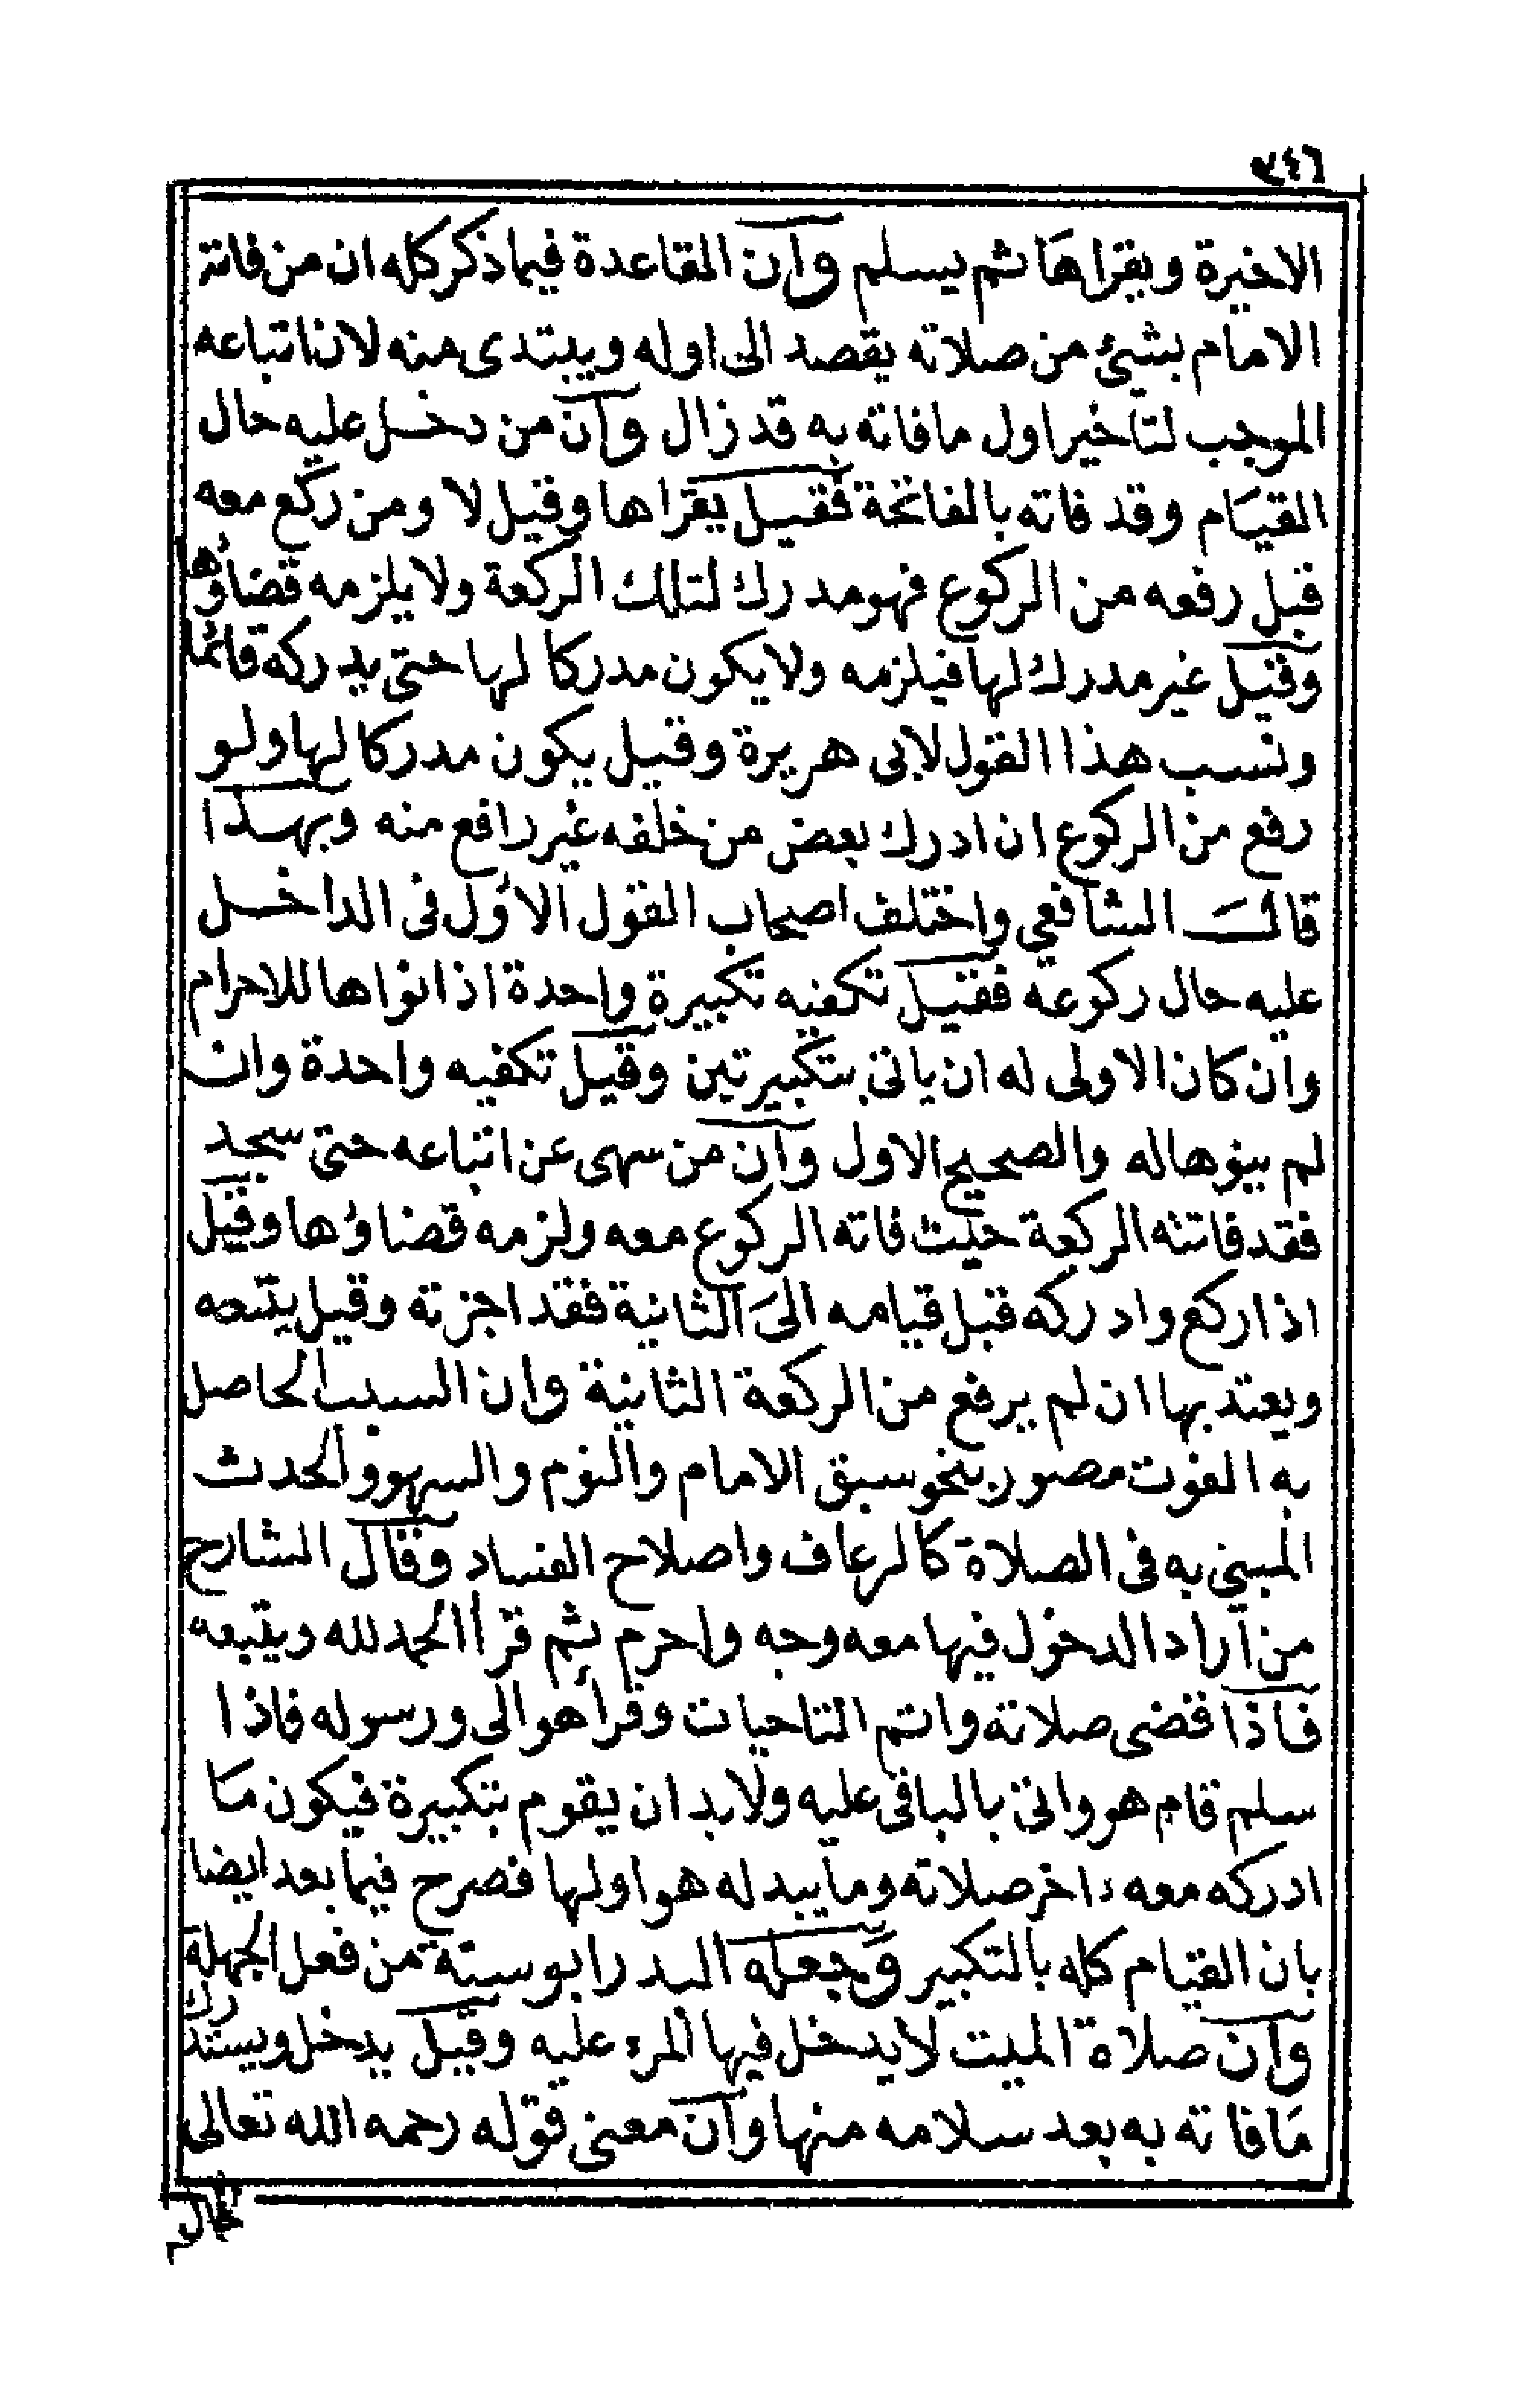 ٥٤٦
الاخيرة ويقراها ثم يسلم وان القاعدة فيما ذكر كله ان من فاته
الامام بشئ من صلاته يقصد الى اوله ويبتدى منه لان اتباعه
الموجب لتاخير اول ما فاته به قد زال وان من دخل عليه حال
القيام وقد فاته بالفاتحة فقيل يقراها وقيل لا ومن ركع معه
قبل رفعه من الركوع فهو مدرك لتلك الركعة ولا يلزمه قضاؤها
وقيل غير مدرك لها فيلزمه ولا يكون مدركا لها حتى يدركه قائما
ونسب هذا القول لابى هريرة وقيل يكون مدركا لها ولو
رفع من الركوع ان ادرك بعض من خلفه غير رافع منه وبهذا
قال الشافعي واختلف اصحاب القول الاول فى الداخل
عليه حال ركوعه فقيل تكفيه تكبيرة واحدة اذا نواها للاحرام
وان كان الاولى له ان ياتى بتكبيرتين وقيل تكفيه واحدة وان
لم ينوها له والصحيح الاول وان من سهى عن اتباعه حتى سجد
فقد فاتته الركعة حيث فاته الركوع معه ولزمه قضاؤها وقيل
اذا ركع وادركه قبل قيامه الى الثانية فقد اجزته وقيل يتبعه
ويعتد بها ان لم يرفع من الركعة الثانية وان السبب الحاصل
به الفوت مصور بنحو سبق الامام والنوم والسهو والحدث
المبني به فى الصلاة كالرعاف واصلاح الفساد وقال الشارح
من اراد الدخول فيها معه وجه واحرم ثم قرأ الحمد لله ويتبعه
فاذا قضى صلاته واتم التاحيات وقرأ هو الى ورسوله فاذا
سلم قام هو واتى بالباقى عليه ولا بد ان يقوم بتكبيرة فيكون ما
ادركه معه ءاخر صلاته وما يبدله هو اولها فصرح فيما بعد ايضا
بان القيام كله بالتكبير وجعله البدر ابو ستة من فعل الجهلة
وان صلاة الميت لا يدخل فيها المرء عليه وقيل يدخل ويستدرك
ما فاته به بعد سلامه منها وان معنى قوله رحمه الله تعالى